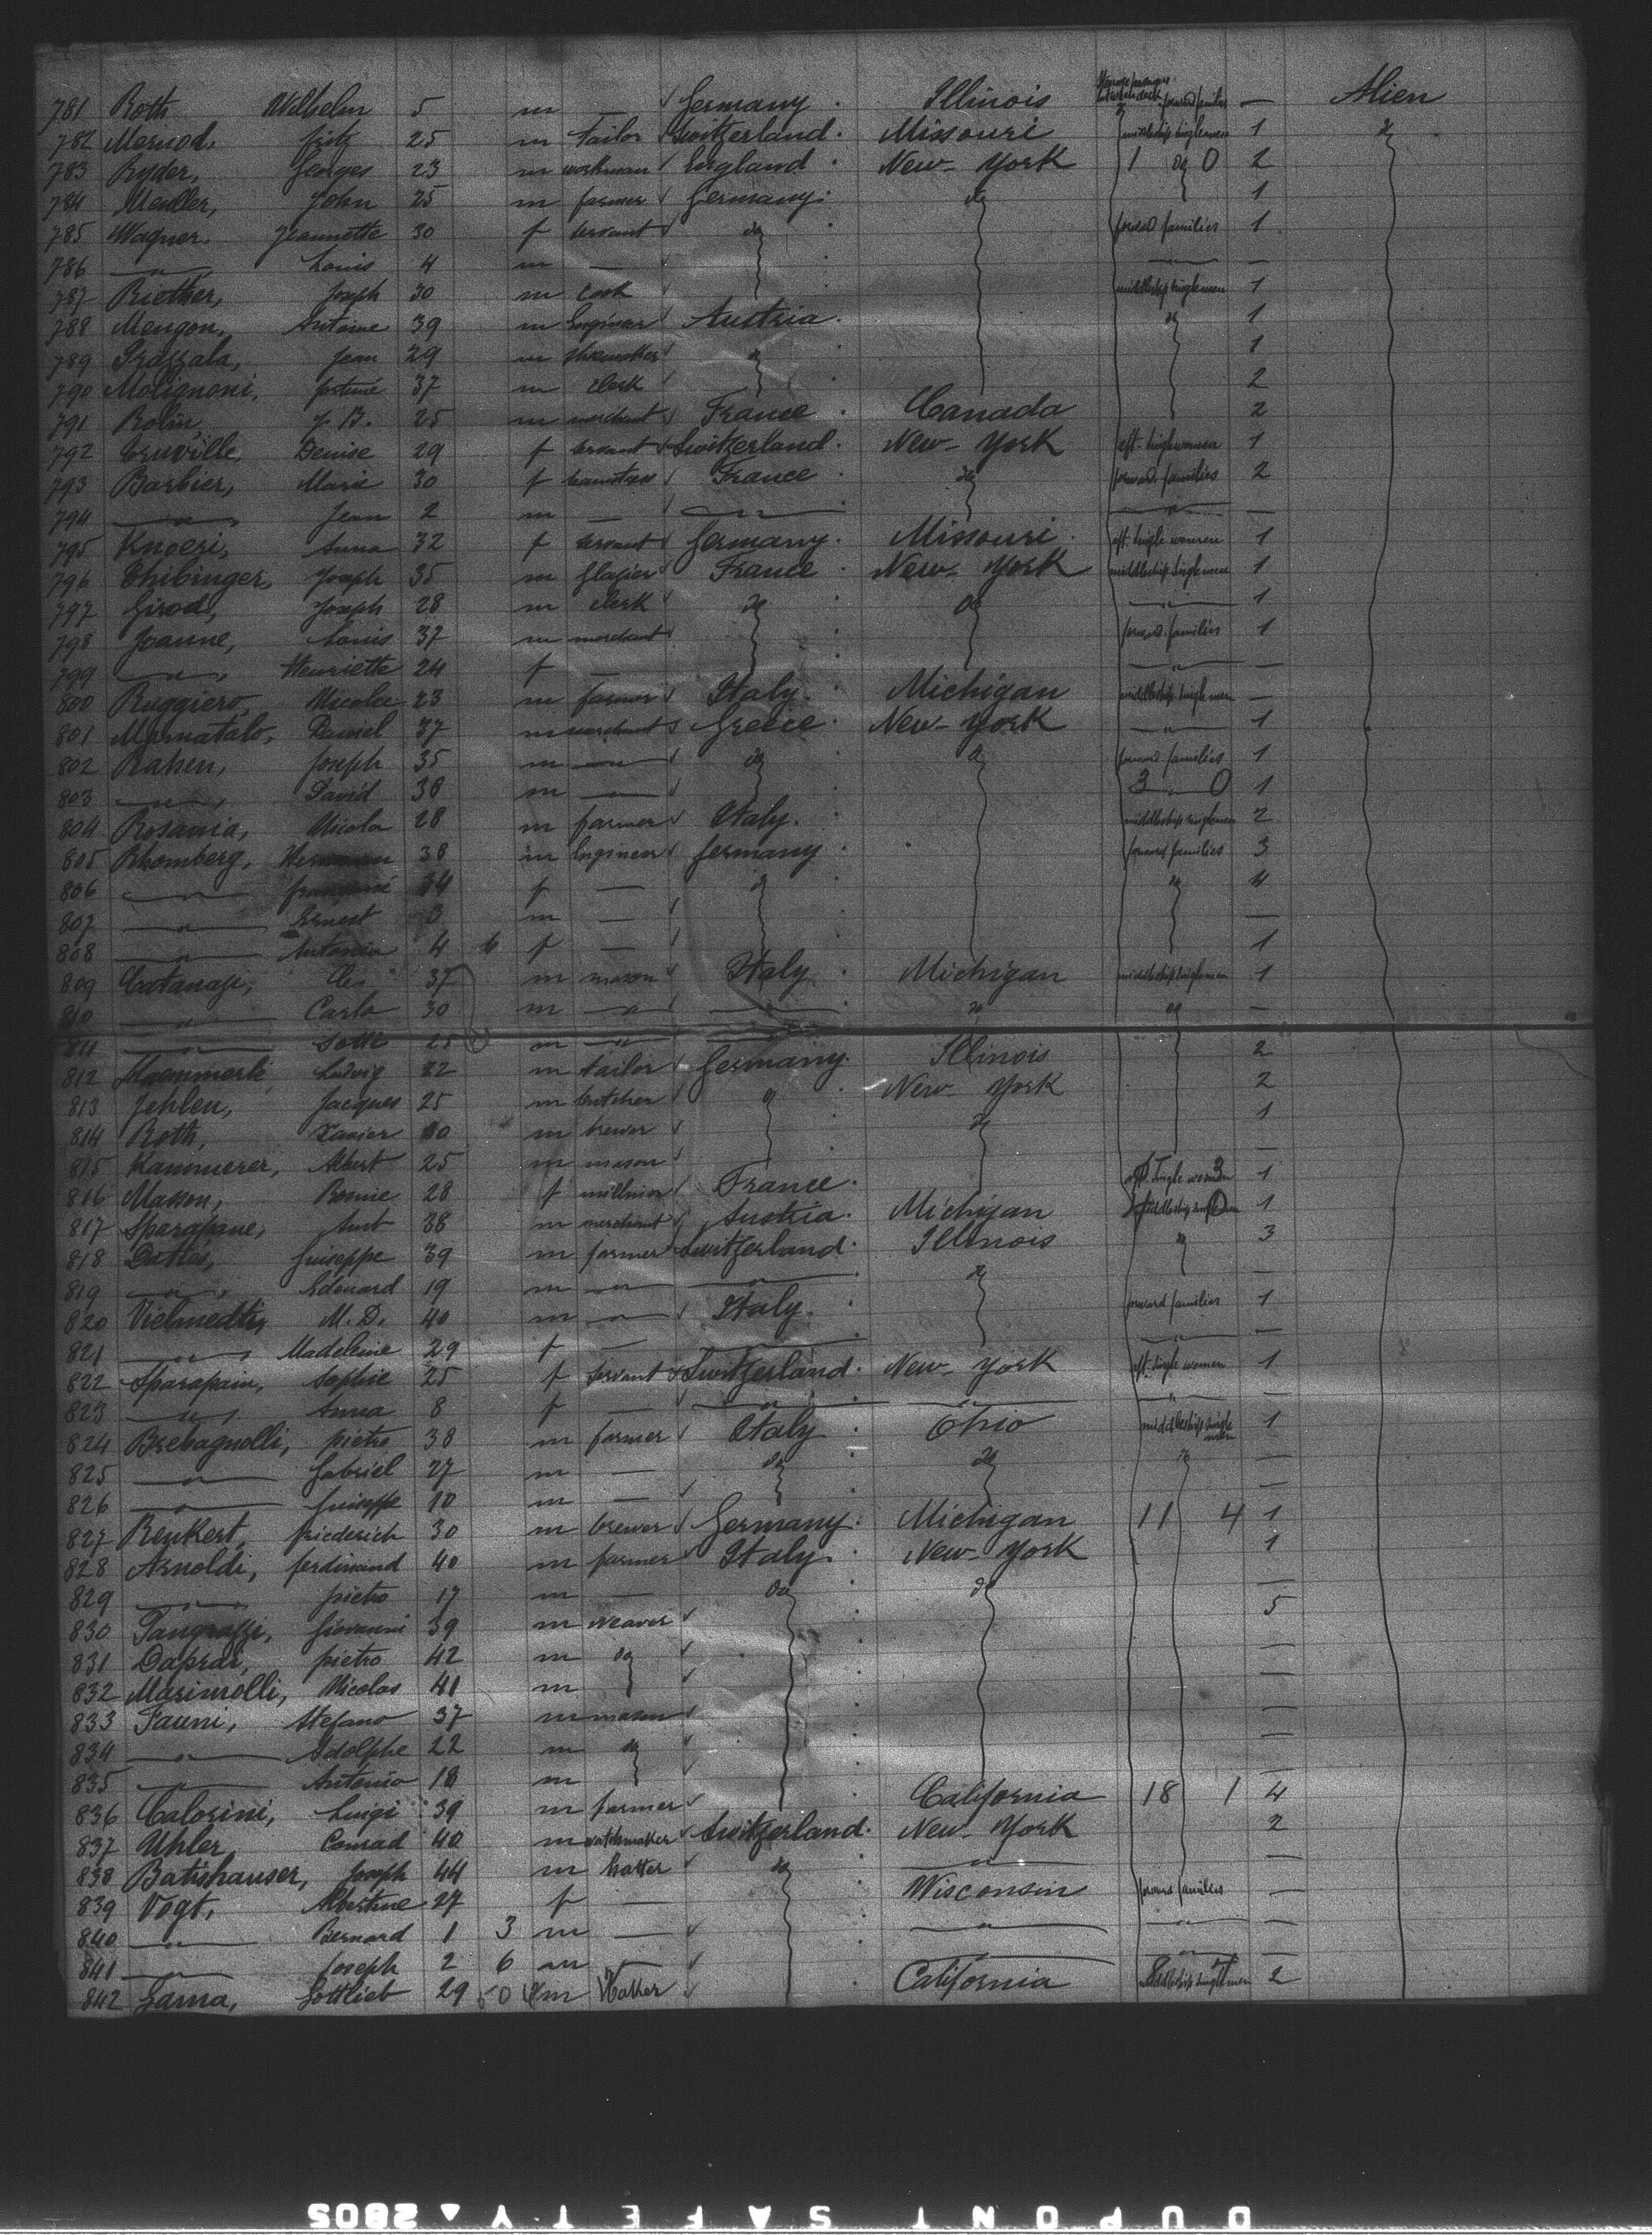 781 Roth Wilhelm 5 m — Germany Illinois forward families — Alien
782 Mermod, fritz 25 m tailor Switzerland. Missouri middleship singlemen 1 do
783 Ryder, Georges 23 m workman England New-York 1 do 0 2
784 Meuller, John 25 m farmer Germany. do 1
785 Wagner, Jeannette 30 f servant do forward families 1
786 —"— Louis 4 m — —
787 Riother, Joseph 30 m cook middleship singlemen 1
788 Mengon, Antoine 39 m Engineer Austria. do 1
789 Jean 29 m shoemaker do 1
790 Molignoni, fortuné 37 m clerk 2
791 Rolin J. B. 25 m merchant France. Canada 2
792 Denise 29 f servant Switzerland. New-York aft. single women 1
793 Barbier, Marie 30 f seamstress France do forward families 2
794 —"— Jean 2 m — —"— —"— —
795 Knoeri, Anna 32 f servant Germany. Missouri. aft. single women 1
796 Chibinger, Joseph 35 m glazier France. New-York middleship single men 1
797 Girod, Joseph 28 m clerk do do —"— 1
798 Joanne, Louis 37 m merchant forward families 1
799 —"— Henriette 24 f — —"— —
800 Ruggiero, Nicolae 23 m farmer Italy. Michigan middleship single men —
801 Daniel 37 m merchant Greece. New-York —"— 1
802 Rahen, Joseph 35 m —"— do do forward families 1
803 —"— David 38 m —"— 3 0 1
804 Rosania, Nicola 28 m farmer Italy. middleship singlemen 2
805 Rhomberg, Hermann 38 m Engineer Germany. forward families 3
806 —"— 34 f — do do 4
807 —"— Ernest 3 m — —
808 —"— Antonia 4 6 f — 1
809 37 m mason Italy Michigan middleship singlemen 1
810 —"— Carlo 30 m —"— —"— do do —
811 —"— 25 m —"—
812 Ludwig 32 m tailor Germany. Illinois 2
813 Jehlen, Jacques 25 m butcher do New-York 2
814 Roth, Xavier 30 m brewer do 1
815 Kammerer, Albert 25 m mason —
816 Masson, 28 f milliner France. aft. single women 3 1
817 Sparapane, 38 m merchant Austria. Michigan 0 1
818 Giuseppe 39 m farmer Switzerland. Illinois do 3
819 —"— Edouard 19 m —"— —"— do —
820 M. D. 40 m —"— Italy. forward families 1
821 —"— Madeleine 29 f — —"— —
822 Sparapain, Sophie 25 f servant Switzerland. New-York aft. single women 1
823 —"— Anna 8 f — —"— —"— —"— —
824 Brebagnolli, pietro 38 m farmer Italy. Ohio middleship single men 1
825 —"— Gabriel 27 m — do do do —
826 —"— Guiseppe 10 m — —
827 Renkert, friederich 30 m brewer Germany. Michigan 11 4 1
828 Arnoldi, ferdinand 40 m farmer Italy. New-York 1
829 —"— pietro 17 m — do do —
830 Giovanni 39 m weaver 5
831 Daprai, pietro 42 m do —
832 Masimolli, Nicolas 41 m —
833 Fauni, Stefano 37 m mason —
834 —"— Adolphe 22 m do —
835 —"— Antonio 18 m —
836 Calorini, Luigi 39 m farmer California 18 1 4
837 Uhler, Conrad 40 m watchmaker Switzerland. New-York 2
838 Batishauser, Joseph 44 m hatter do —"— —
839 Vogt, Albertine 27 f — Wisconsin forward families —
840 —"— Bernard 1 3 m — —"— —"— —
841 —"— Joseph 2 6 m — —"— —"— —
842 Gottlieb 29 m Hatter California 2
DUPONT SAFETY ▲ 2805